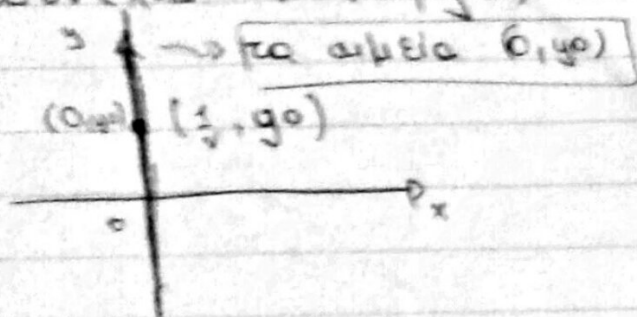 y → τα σημεία (0, y0)
(0, y0) (1/ν, y0)
0 x